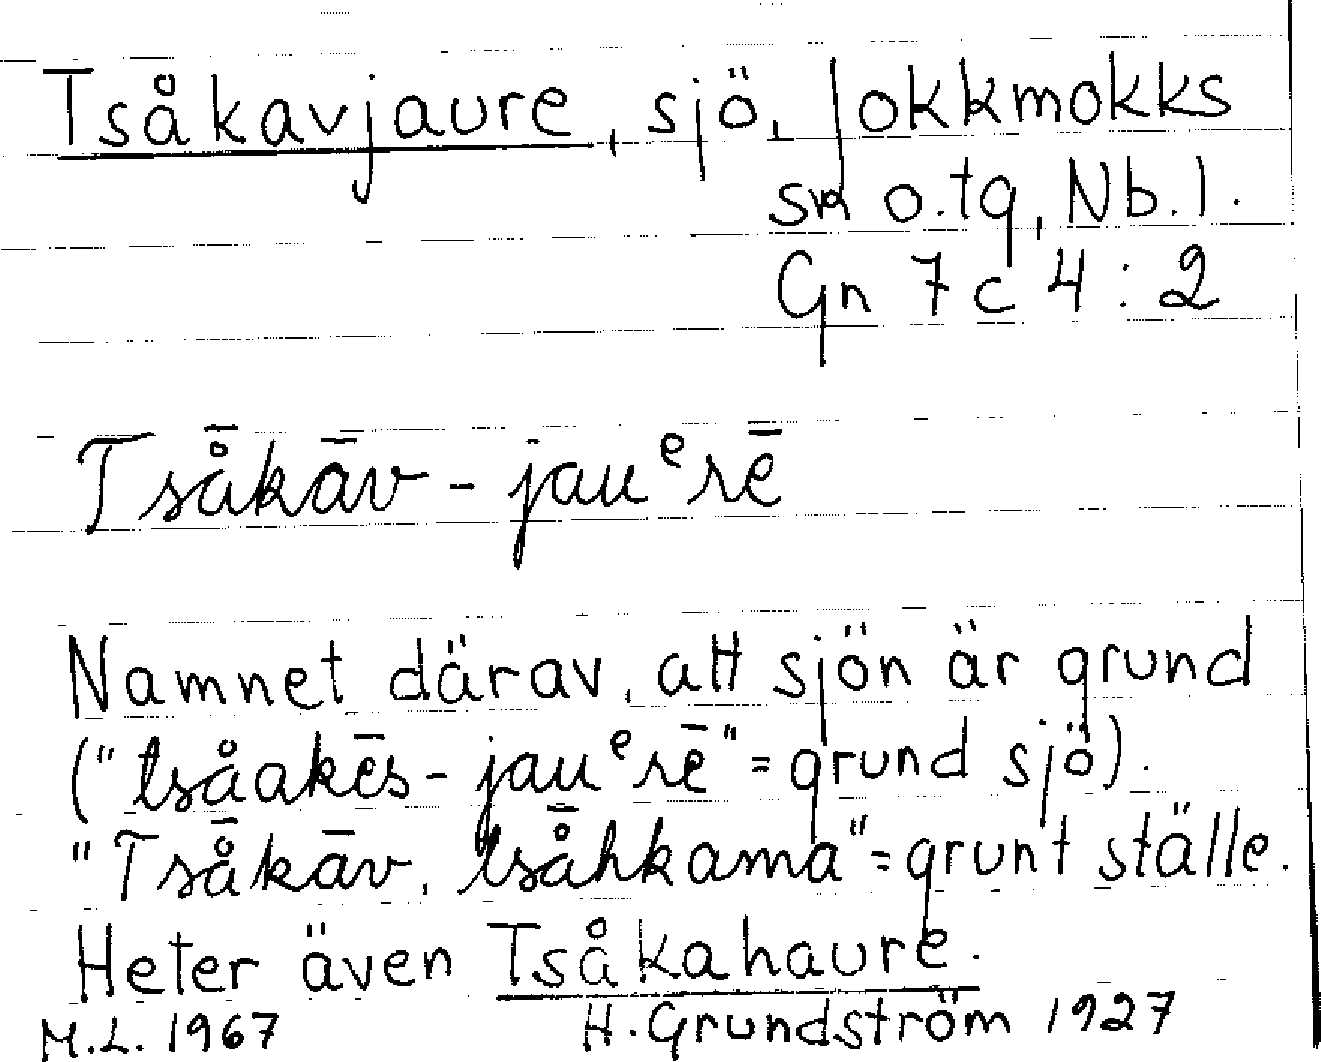 Tsåkavjaure, sjö, Jokkmokks
sn o. tg, Nb. l.
Gn 7 c 4 : 2
Tså̄kāv - jauᵉrē
Namnet därav, att sjön är grund
("tsåakēs - jauᵉrē" = grund sjö).
"Tså̄kāv, tså̄hkama" = grunt ställe.
Heter även Tsåkahaure.
M.L. 1967 H. Grundström 1927